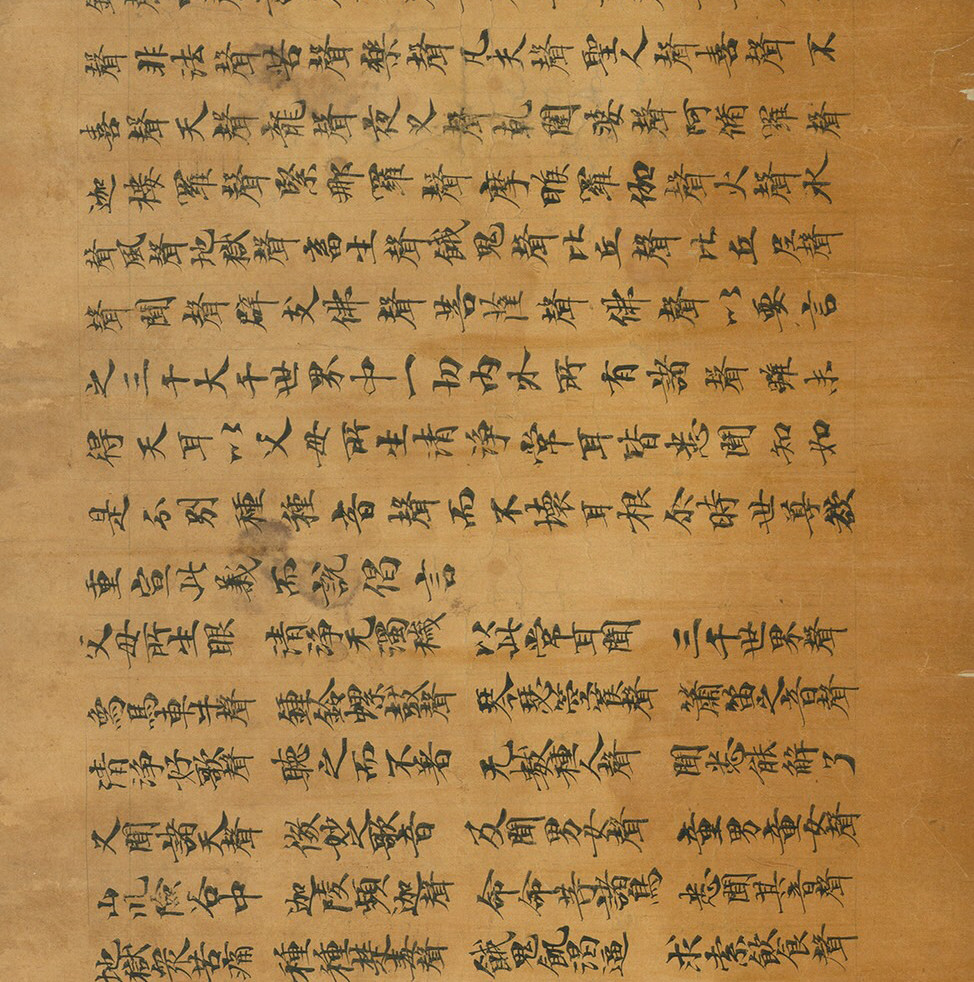 聲非法聲苦聲樂聲凡夫聲聖人聲喜聲不
喜聲天聲龍聲夜叉聲乾闥婆聲阿脩羅聲
迦樓羅聲緊那羅聲摩睺羅伽聲火聲水
聲風聲地獄聲畜生聲餓鬼聲比丘聲比丘尼聲
聲聞聲辟支佛聲菩薩聲佛聲以要言
之三千大千世界中一切内外所有諸聲雖未
得天耳以父母所生清淨常耳皆悉聞知如
是分別種種音聲而不壞耳根尒時世尊欲
重宣此義而說偈言
父母所生眼 清淨无濁穢 以此常耳聞 三千世界聲
象馬車牛聲 鍾鈴螺鼓聲 琴瑟箜篌聲 簫笛之音聲
清淨好歌聲 聽之而不著 无數種人聲 聞悉能解了
又聞諸天聲 微妙之歌音 及聞男女聲 童男童女聲
山川險谷中 迦陵頻迦聲 命命等諸鳥 悉聞其音聲
地獄衆苦痛 種種楚毒聲 餓鬼飢渴逼 求索飲食聲